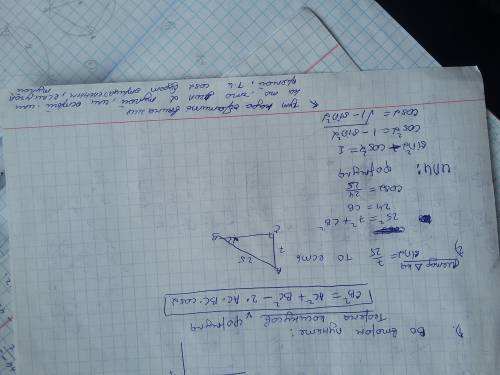 1). Во втором пункте:
Теорема косинусов v формула
CB² = AC² + BC² - 2·AC·BC·cosα
2) sinα = 7/25 то есть
A
7
25
C
B
α
25² = 7² + CB²
24 = CB
cosα = 24/25
или: формула
sin²α + cos²α = 1
cos²α = 1 - sin²α
cosα = √1 - sin²α
К тут надо обратить внимание
на то, что угол α тупой, или острый или
прямой, т.к cosα будет отрицательным, если угол
тупой